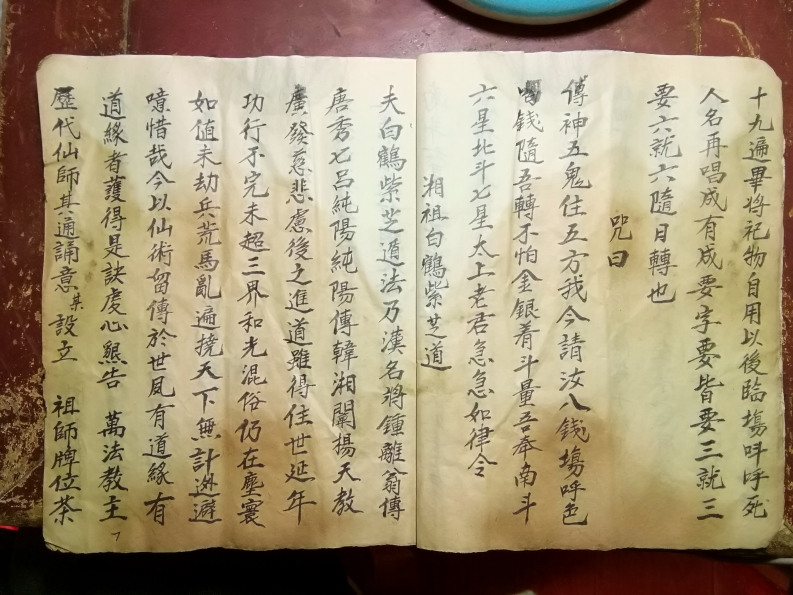 十九遍畢將祀物自用以後臨塲呌呼死
人名再唱成有成要字要皆要三就三
要六就六隨目轉也
咒曰
傅神五鬼住五方我今請汝入錢塲呼色
錢隨吾轉不怕金銀着斗量吾奉南斗
六星北斗七星太上老君急急如律令
湘祖白鶴紫芝道
夫白鶴紫芝遁法乃漢名將鍾離翁傳
唐秀七吕純陽純陽傳韓湘闡揚天教
廣發慈悲慮後之進道雖得住世延年
功行不完未超三界和光混俗仍在塵寰
如值未劫兵荒馬亂遍撓天下無計逃避
噫惜哉今以仙術留傳於世凨有道緣有
道緣者獲得是訣虔心懇告 萬法教主
歷代仙師其通誦意某設立 祖師牌位茶